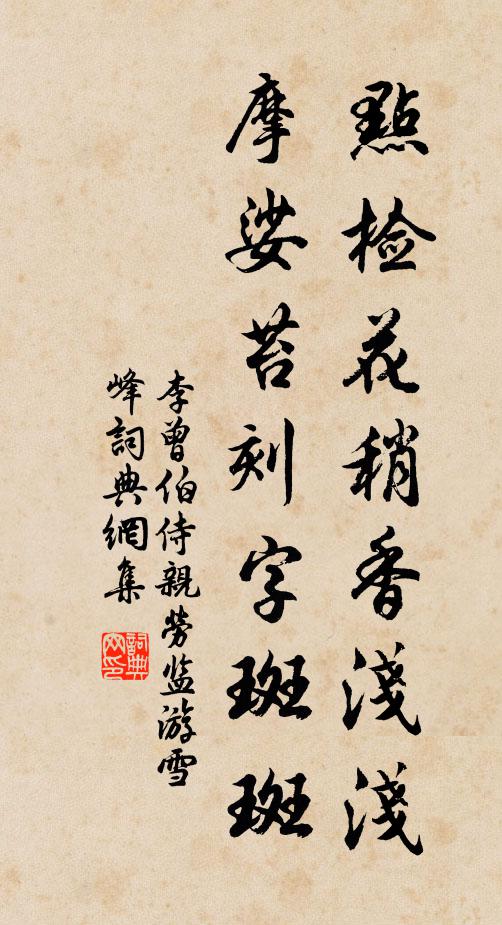 點檢花稍香淺淺
摩娑苔刻字斑斑
李曾伯侍親勞监游雪
峰詞典網集
詞典網印